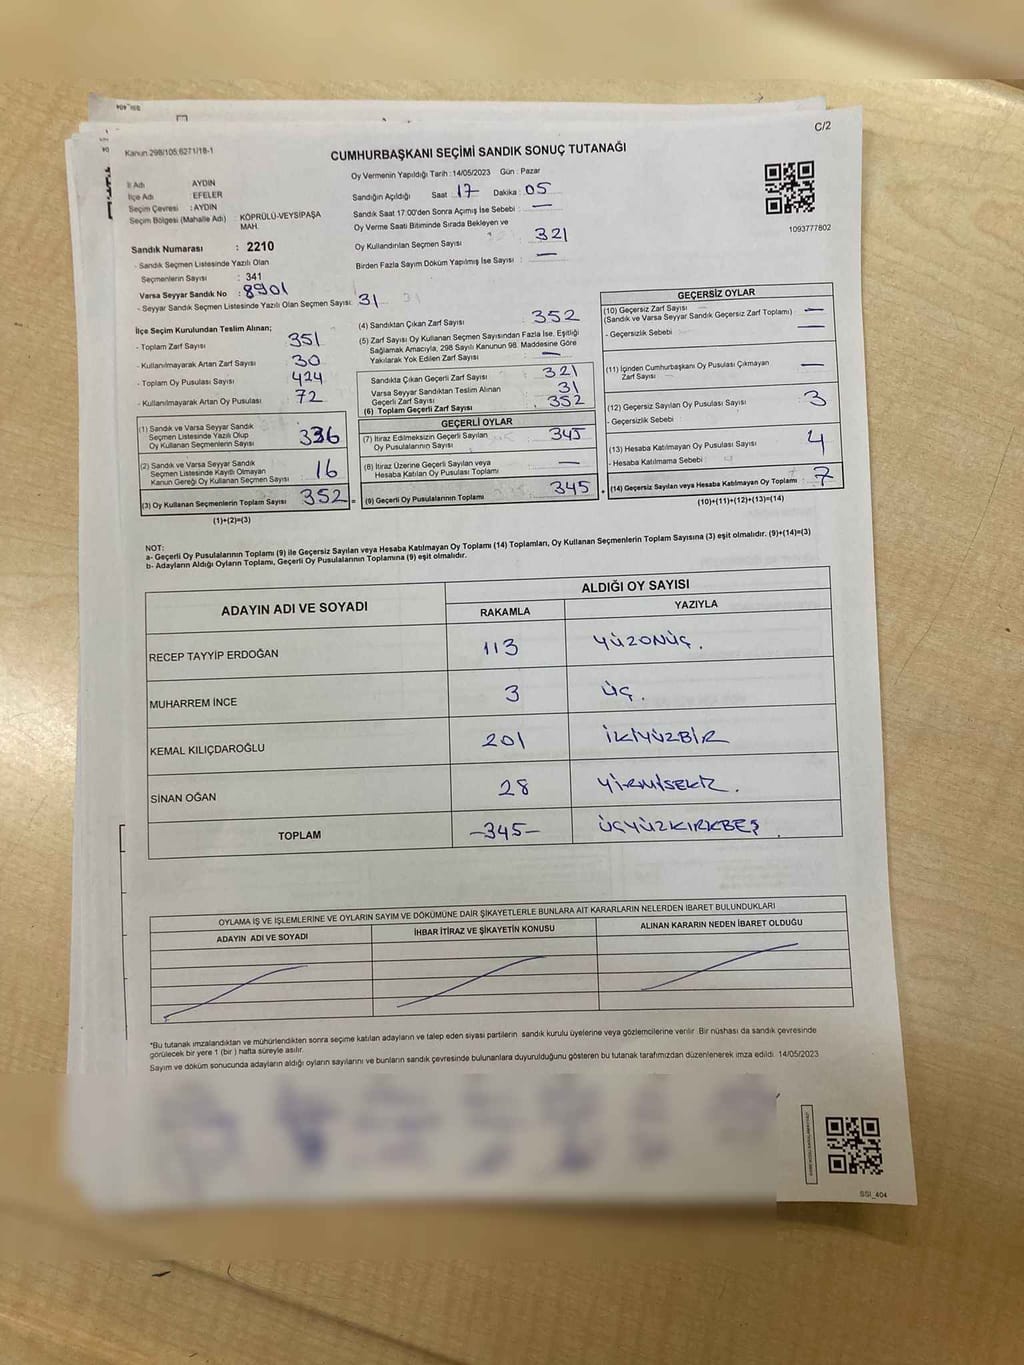 C/2
Kanun.298/105,6271/18-1
CUMHURBAŞKANI SEÇİMİ SANDIK SONUÇ TUTANAĞI
İl Adı AYDIN
İlçe Adı : EFELER
Seçim Çevresi : AYDIN
Seçim Bölgesi (Mahalle Adı) : KÖPRÜLÜ-VEYSİPAŞA MAH.
Sandık Numarası : 2210
- Sandık Seçmen Listesinde Yazılı Olan
Seçmenlerin Sayısı : 341
Varsa Seyyar Sandık No : 8901
- Seyyar Sandık Seçmen Listesinde Yazılı Olan Seçmen Sayısı: 31
Oy Vermenin Yapıldığı Tarih :14/05/2023 Gün : Pazar
Sandığın Açıldığı Saat 17 Dakika : 05
Sandık Saat 17:00'den Sonra Açımış İse Sebebi : —
Oy Verme Saati Bitiminde Sırada Bekleyen ve
Oy Kullandırılan Seçmen Sayısı : 321
Birden Fazla Sayım Döküm Yapılmış İse Sayısı : —
1093777802
İlçe Seçim Kurulundan Teslim Alınan;
- Toplam Zarf Sayısı 351
- Kullanılmayarak Artan Zarf Sayısı 30
- Toplam Oy Pusulası Sayısı 424
- Kullanılmayarak Artan Oy Pusulası 72
(1) Sandık ve Varsa Seyyar Sandık
Seçmen Listesinde Yazılı Olup
Oy Kullanan Seçmenlerin Sayısı 336
(2) Sandık ve Varsa Seyyar Sandık
Seçmen Listesinde Kayıtlı Olmayan
Kanun Gereği Oy Kullanan Seçmen Sayısı 16
(3) Oy Kullanan Seçmenlerin Toplam Sayısı 352 =
(1)+(2)=(3)
(4) Sandıktan Çıkan Zarf Sayısı 352
(5) Zarf Sayısı Oy Kullanan Seçmen Sayısından Fazla İse, Eşitliği
Sağlamak Amacıyla, 298 Sayılı Kanunun 98. Maddesine Göre
Yakılarak Yok Edilen Zarf Sayısı —
Sandıkta Çıkan Geçerli Zarf Sayısı : 321
Varsa Seyyar Sandıktan Teslim Alınan
Geçerli Zarf Sayısı 31
(6) Toplam Geçerli Zarf Sayısı : 352
GEÇERLİ OYLAR
(7) İtiraz Edilmeksizin Geçerli Sayılan
Oy Pusulalarının Sayısı 345
(8) İtiraz Üzerine Geçerli Sayılan veya
Hesaba Katılan Oy Pusulası Toplamı —
(9) Geçerli Oy Pusulalarının Toplamı 345 +
GEÇERSİZ OYLAR
(10) Geçersiz Zarf Sayısı
(Sandık ve Varsa Seyyar Sandık Geçersiz Zarf Toplamı) : —
- Geçersizlik Sebebi : —
(11) İçinden Cumhurbaşkanı Oy Pusulası Çıkmayan
Zarf Sayısı : —
(12) Geçersiz Sayılan Oy Pusulası Sayısı : 3
- Geçersizlik Sebebi :
(13) Hesaba Katılmayan Oy Pusulası Sayısı : 4
- Hesaba Katılmama Sebebi :
(14) Geçersiz Sayılan veya Hesaba Katılmayan Oy Toplamı : 7
(10)+(11)+(12)+(13)=(14)
NOT:
a- Geçerli Oy Pusulalarının Toplamı (9) ile Geçersiz Sayılan veya Hesaba Katılmayan Oy Toplamı (14) Toplamları, Oy Kullanan Seçmenlerin Toplam Sayısına (3) eşit olmalıdır. (9)+(14)=(3)
b- Adayların Aldığı Oyların Toplamı, Geçerli Oy Pusulalarının Toplamına (9) eşit olmalıdır.
ADAYIN ADI VE SOYADI ALDIĞI OY SAYISI
RAKAMLA YAZIYLA
RECEP TAYYİP ERDOĞAN 113 YÜZONÜÇ.
MUHARREM İNCE 3 ÜÇ.
KEMAL KILIÇDAROĞLU 201 İKİYÜZBİR
SİNAN OĞAN 28 YİRMİSEKİZ.
TOPLAM -345- ÜÇYÜZKIRKBEŞ.
OYLAMA İŞ VE İŞLEMLERİNE VE OYLARIN SAYIM VE DÖKÜMÜNE DAİR ŞİKAYETLERLE BUNLARA AİT KARARLARIN NELERDEN İBARET BULUNDUKLARI
ADAYIN ADI VE SOYADI İHBAR İTİRAZ VE ŞİKAYETİN KONUSU ALINAN KARARIN NEDEN İBARET OLDUĞU
*Bu tutanak imzalandıktan ve mühürlendikten sonra seçime katılan adayların ve talep eden siyasi partilerin sandık kurulu üyelerine veya gözlemcilerine verilir. Bir nüshası da sandık çevresinde
görülecek bir yere 1 (bir ) hafta süreyle asılır.
Sayım ve döküm sonucunda adayların aldığı oyların sayılarını ve bunların sandık çevresinde bulunanlara duyurulduğunu gösteren bu tutanak tarafımızdan düzenlenerek imza edildi. 14/05/2023
SSI_404